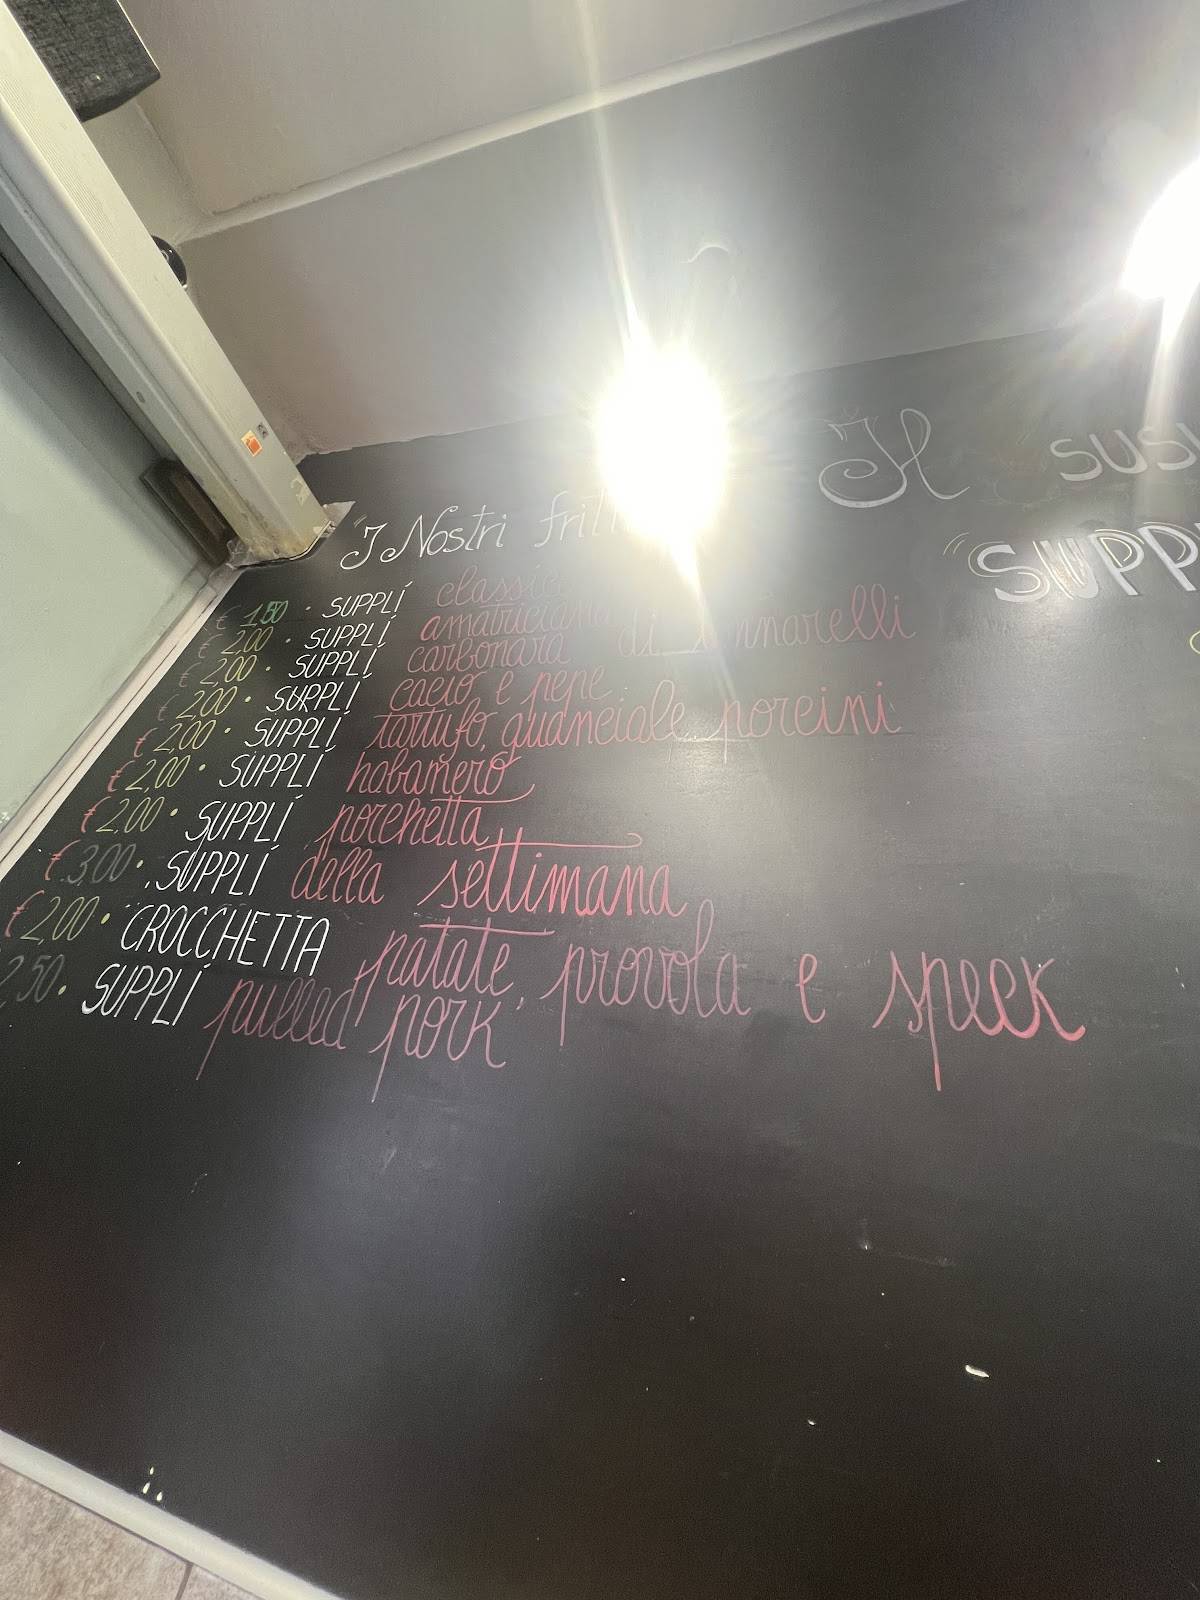 I Nostri fritti
€ 1,50 • SUPPLÍ classico
€ 2,00 • SUPPLÍ amatriciana
€ 2,00 • SUPPLÍ carbonara di tonnarelli
€ 2,00 • SUPPLÍ cacio e pepe
€ 2,00 • SUPPLÍ tartufo, guanciale, porcini
€ 2,00 • SUPPLÍ habañero
€ 2,00 • SUPPLÍ porchetta
€ 3,00 • SUPPLÍ della settimana
€ 2,00 • CROCCHETTA patate, provola e speck
2,50 • SUPPLÍ pulled pork
Il SUSH
"SUPPL